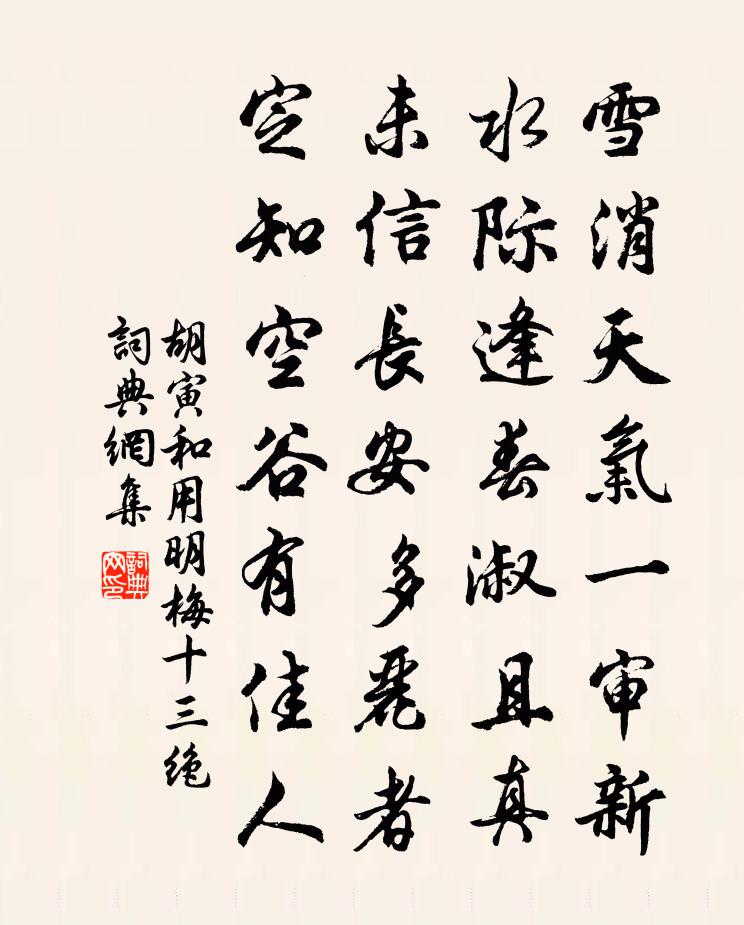 雪消天氣一审新
水际逢春淑且真
未信長安多麗者
定知空谷有佳人
胡寅和用明梅十三绝
詞典網集
詞典网印